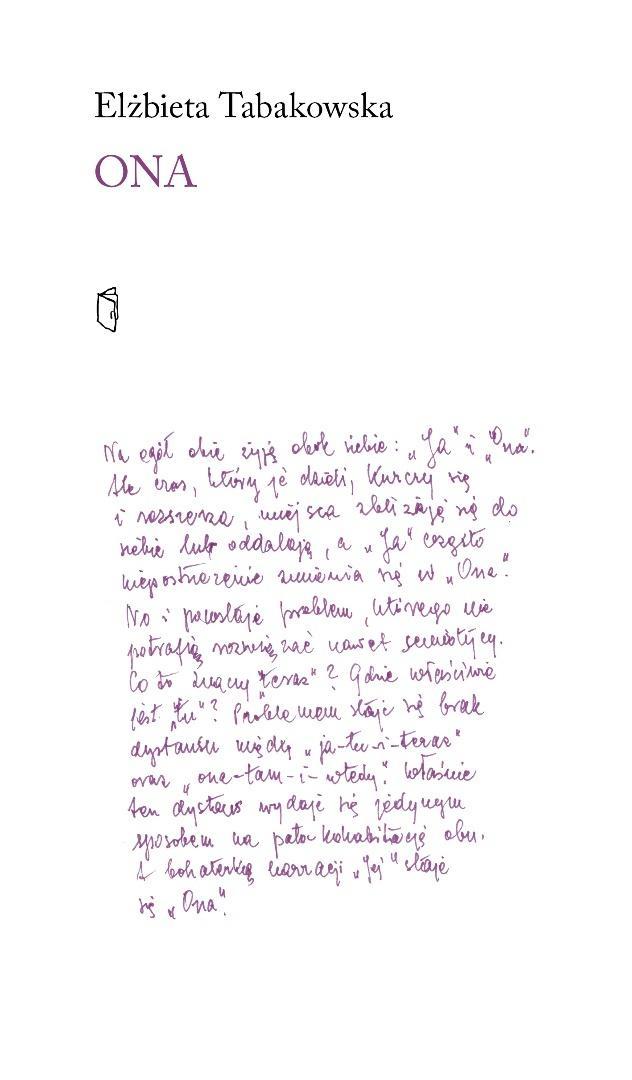 Elżbieta Tabakowska
ONA
Na ogół obie żyją obok siebie: „Ja” i „Ona”.
Ale czas, który je dzieli, kurczy się
i rozszerza, miejsca zbliżają się do
siebie lub oddalają, a „Ja” często
niepostrzeżenie zmienia się w „Ona”.
No i powstaje problem, którego nie
potrafią rozwiązać nawet semiotycy.
Co to znaczy „teraz”? Gdzie właściwie
jest „tu”? Problemem staje się brak
dystansu między „ja-tu-i-teraz”
oraz „ona-tam-i-wtedy”. Właśnie
ten dystans wydaje się jedynym
sposobem na kohabitację obu.
A bohaterką narracji „Jej” staje
się „Ona”.